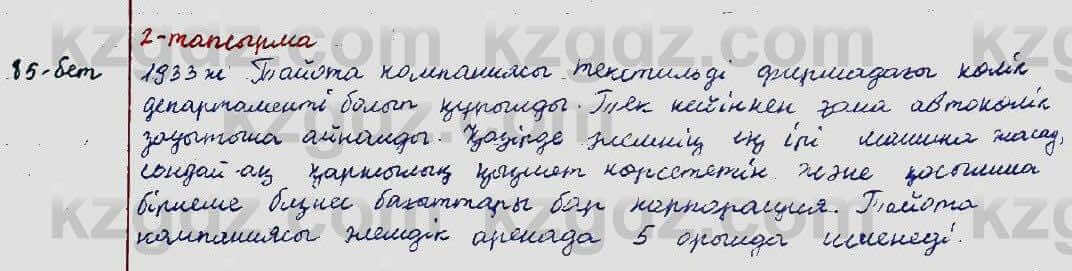 2-тапсырма
85-бет 1933 ж Тайота компаниясы текстильді фирмадағы көлік
департаменті болып құрылды. Тек кейіннен ғана автокөлік
зауытына айналды. Қазірде әлемнің ең ірі машина жасау,
сондай-ақ қаржылық қызмет көрсететін және қосымша
бірнеше бизнес бағыттары бар корпорация. Тайота
компаниясы әлемдік аренада 5 орында ілінеді.